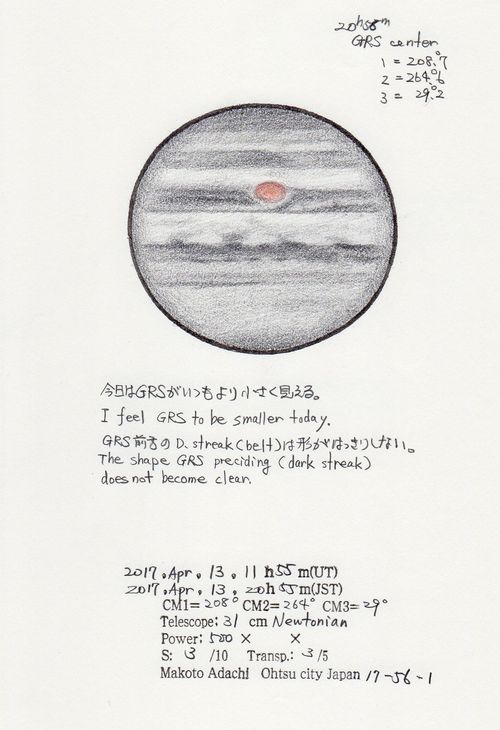 20h58m
GRS center
1 = 208.°7
2 = 264.°6
3 = 29.°2
今日はGRSがいつもより小さく見える。
I feel GRS to be smaller today.
GRS前方の D. streak(belt)は形がはっきりしない。
The shape GRS preciding (dark streak)
does not become clear.
2017. Apr. 13. 11 h 55 m(UT)
2017. Apr. 13. 20h 55 m(JST)
CM1= 208° CM2= 264° CM3= 29°
Telescope: 31 cm Newtonian
Power: 500 × ×
S: 3 /10 Transp.: 3 /5
Makoto Adachi Ohtsu city Japan 17-56-1